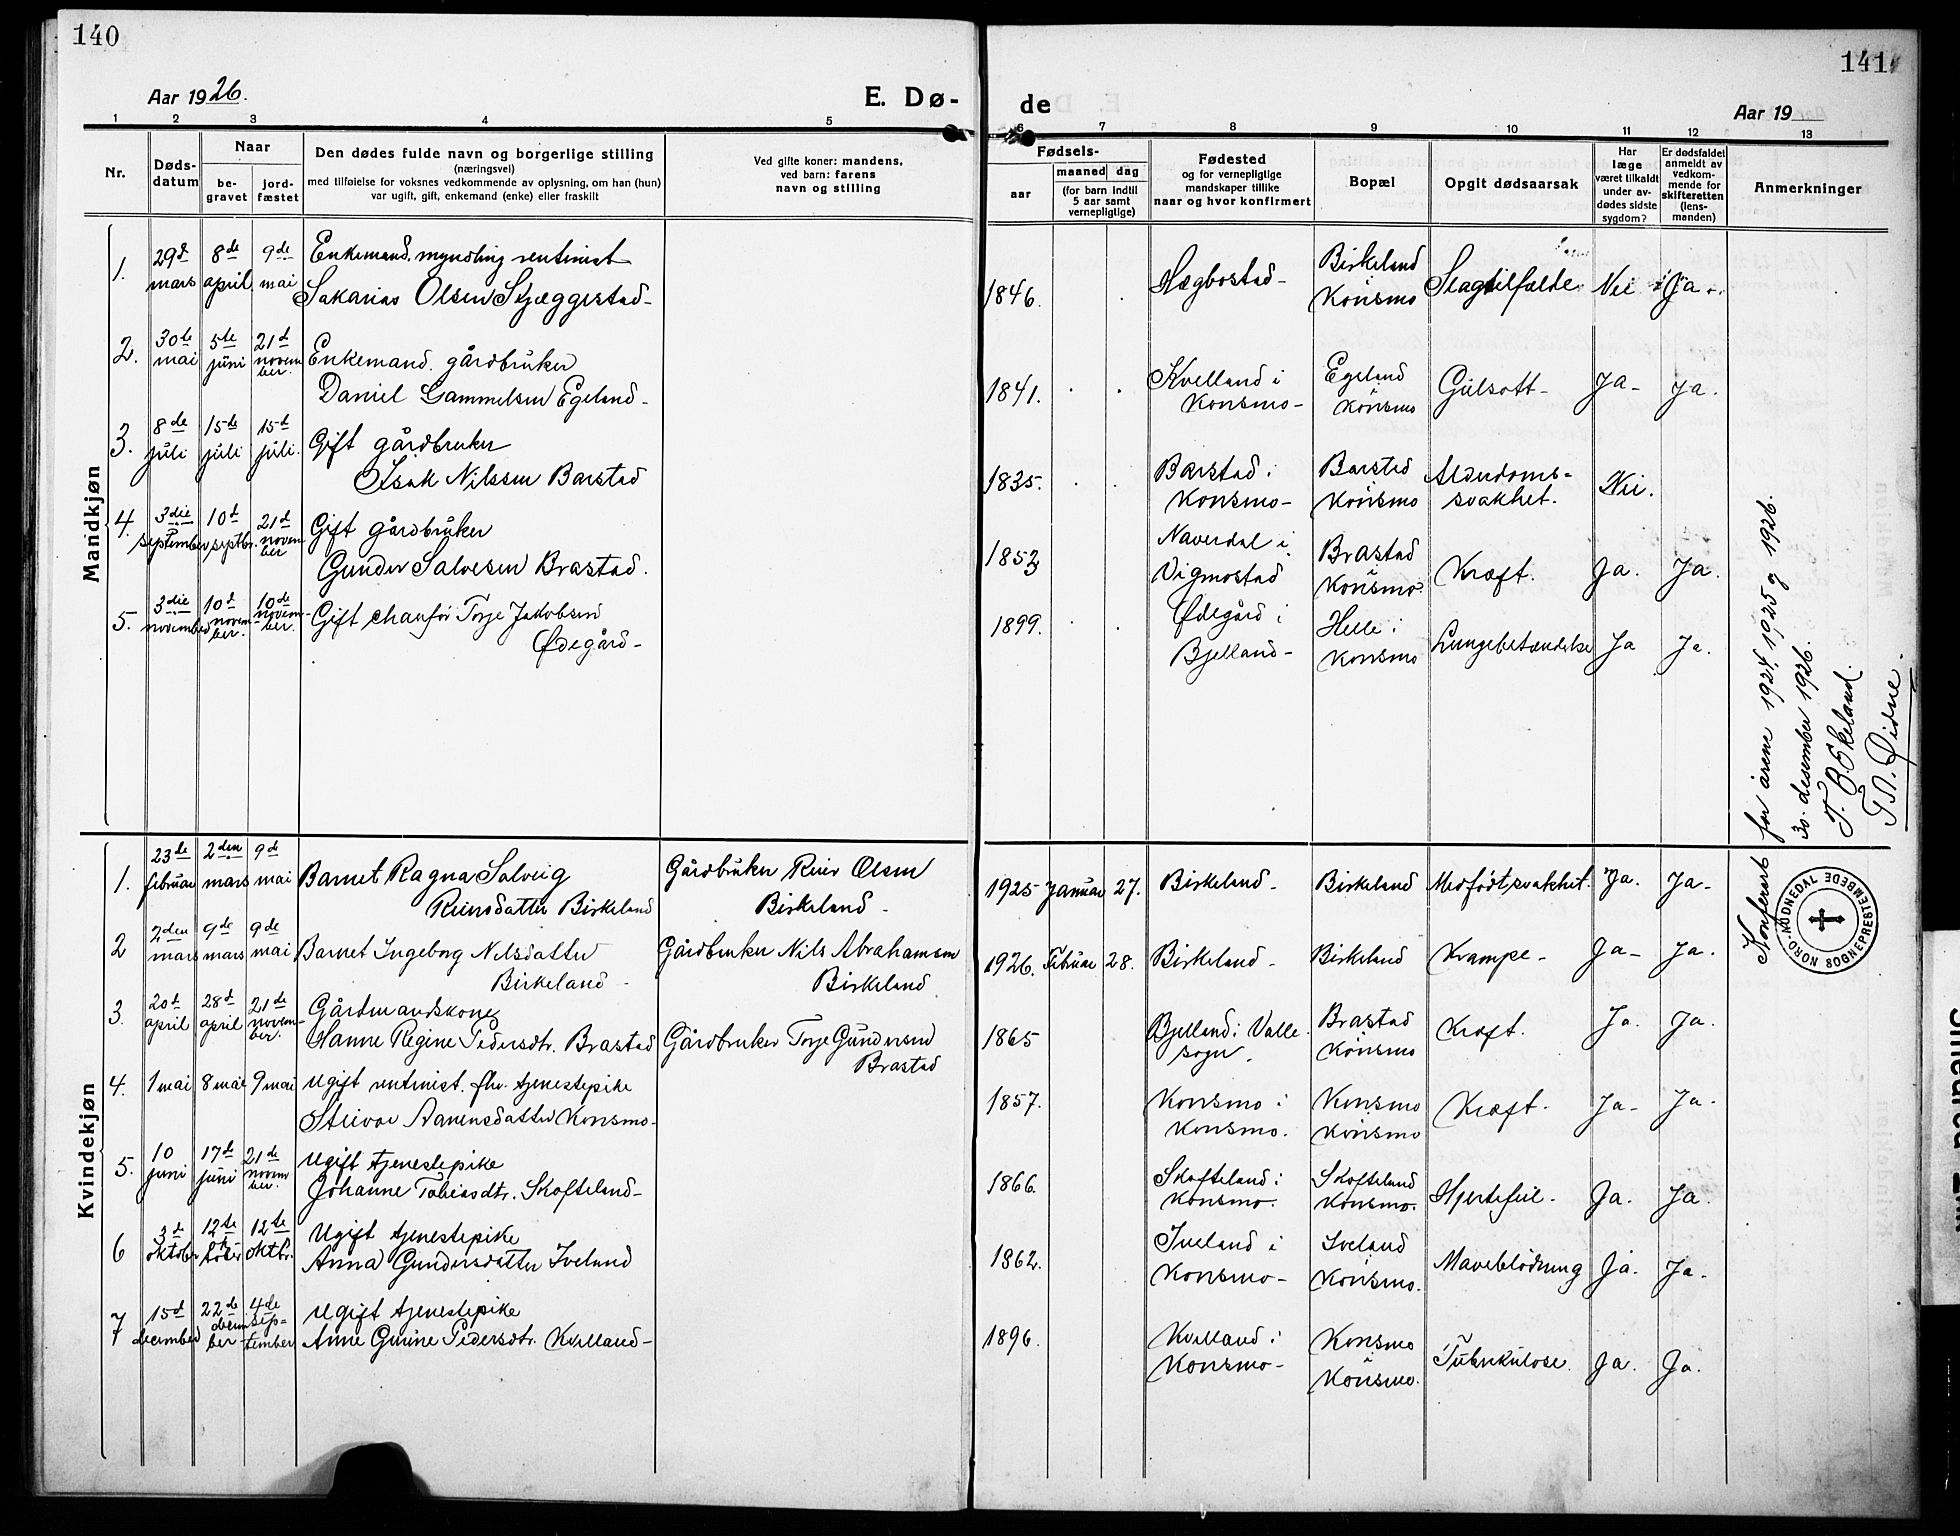 140
141
Aar 1926.
E. Dø-
de
Aar 19
1 2 3 4 5 6 7 8 9 10 11 12 13
Nr.
Døds-
datum
Naar
be-
gravet
jord-
fæstet
Den dødes fulde navn og borgerlige stilling
(næringsvei)
med tilføielse for voksnes vedkommende av oplysning, om han (hun)
var ugift, gift, enkemand (enke) eller fraskilt
Ved gifte koner: mandens,
ved barn: farens
navn og stilling
Fødsels-
aar
maaned dag
(for barn indtil
5 aar samt
vernepligtige)
Fødested
og for vernepligtige
mandskaper tillike
naar og hvor konfirmert
Bopæl
Opgit dødsaarsak
Har
læge
været tilkaldt
under av-
dødes sidste
sygdom?
Er dødsfaldet
anmeldt av
vedkom-
mende for
skifteretten
(lens-
manden)
Anmerkninger
Mandkjøn
1. 29d mars 8de april 9de mai Enkemand, myndling rentenist
Sakarias Olsen Skjeggestad- 1846. Hægbostad- Birkeland Konsmo Slagtilfælde Nei Ja
2. 30te mai 5te juni 21d november. Enkemand. gårdbruker
Daniel Gammelsen Egeland- 1841. Kvelland i Konsmo- Egeland Konsmo Gulsott- Ja- Ja.
3. 8de juli 15de juli 15d juli. Gift gårdbruker
Isak Nilssen Barstad 1835. Barstad i Konsmo- Barstad Konsmo Alderdoms-
svakhet. Nei.
4. 3die september 10d septbr. 21d november Gift gårdbruker
Gunder Salvesen Brastad. 1853 Naverdal i Vigmostad Brastad Konsmo Kræft. Ja. Ja.
5. 3die november 10d november. 10de november. Gift chaufør Torje Jakobsen
Ødegård- 1899. Ødegård i Bjelland- Helle i Konsmo Lungebetændelse Ja Ja.
Kvindekjøn
1. 23de februar 2den mars 9de mai Barnet Ragna Solveig
Reiersdatter Birkeland Gårdbruker Reier Olsen
Birkeland- 1925 Januar 27. Birkeland- Birkeland Medfødt svakhet. Ja. Ja-
2 2den mars 9de mars 9de mai Barnet Ingeborg Nilsdatter
Birkeland- Gårdbruker Nils Abrahamsen
Birkeland 1926. Februar 28. Birkeland- Birkeland Krampe- Ja- Ja.
3. 20d april 28d april 21de november. Gårdmandskone
Hanne Regine Pedersdtr. Brastad Gårdbruker Torje Gundersen
Brastad 1865 Bjelland i Valle
sogn. Brastad Konsmo Kræft. Ja. Ja.
4. 1 mai 8 mai 9 mai Ugift rentenist. fhv. tjenestepike
Aanensdatter Konsmo- 1857. Konsmo i Konsmo. Konsmo Konsmo Kræft. Ja- Ja.
5. 10 juni 17de juni 21de november. Ugift tjenestepike
Johanne Tobiasdtr. Skofteland- 1866. Skofteland i Konsmo. Skofteland Konsmo. Hjertefeil- Ja. Ja.
6 3d oktober 12te 12te oktbr. Ugift tjenestepike
Anna Gundersdatter Iveland 1862. Iveland i Konsmo- Iveland Konsmo. Maveblødning Ja. Ja.
7 15d december 22de december 4de september Ugift tjenestepike
Anne Gurine Pedersdtr. Kvelland- 1896. Kvelland i Konsmo- Konsmo Konsmo. Tuberkulose. Ja. Ja.
Konferert for årene 1924, 1925 og 1926.
30. desember 1926.
T. B. Økeland.
T. Øidne.
NORD-AUDNEDAL SOGNEPRESTEMBEDE